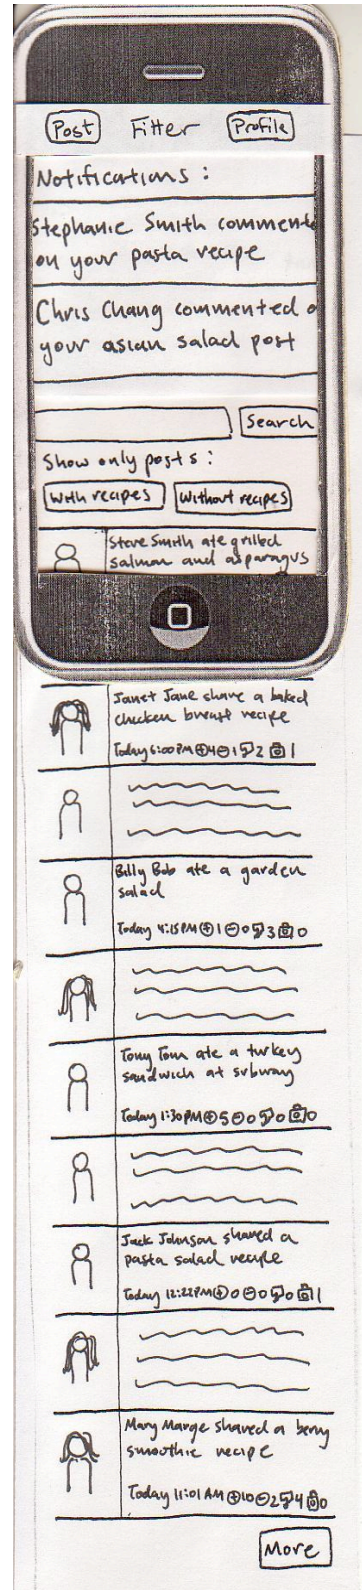 Post Fitter Profile
Notifications :
Stephanie Smith commente
on your pasta recipe
Chris Chang commented o
your asian salad post
Search
Show only posts :
With recipes Without recipes
Steve Smith ate grilled
salmon and asparagus
Janet Jane share a baked
chicken breast recipe
Today 6:00PM ⊕4⊖1 2 1
Billy Bob ate a garden
salad
Today 4:15PM ⊕1⊖0 3 0
Tony Tom ate a turkey
sandwich at subway
Today 1:30PM ⊕5⊖0 0 0
Jack Johnson shared a
pasta salad recipe
Today 12:22PM ⊕0⊖0 0 1
Mary Marge shared a berry
smoothie recipe
Today 11:01AM ⊕10⊖2 4 0
More